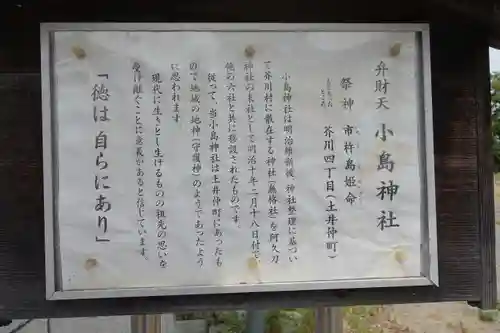 弁財天 小島神社
祭神 市杵島姫命
芥川四丁目(土井仲町)
小島神社は明治維新後、神社整理に基づい
て芥川村に散在する神社(無格社)を阿久刀
神社の末社として明治十年二月十八日付で
他の六社と共に移設されたものです。
従って、当小島神社は土井仲町にあったも
ので、地域の地神(守護神)のようであったよう
に思われます
現代に生きとし生けるものの祖先の思いを
受け継ぐことに意義があると信じています。
「徳は自らにあり」